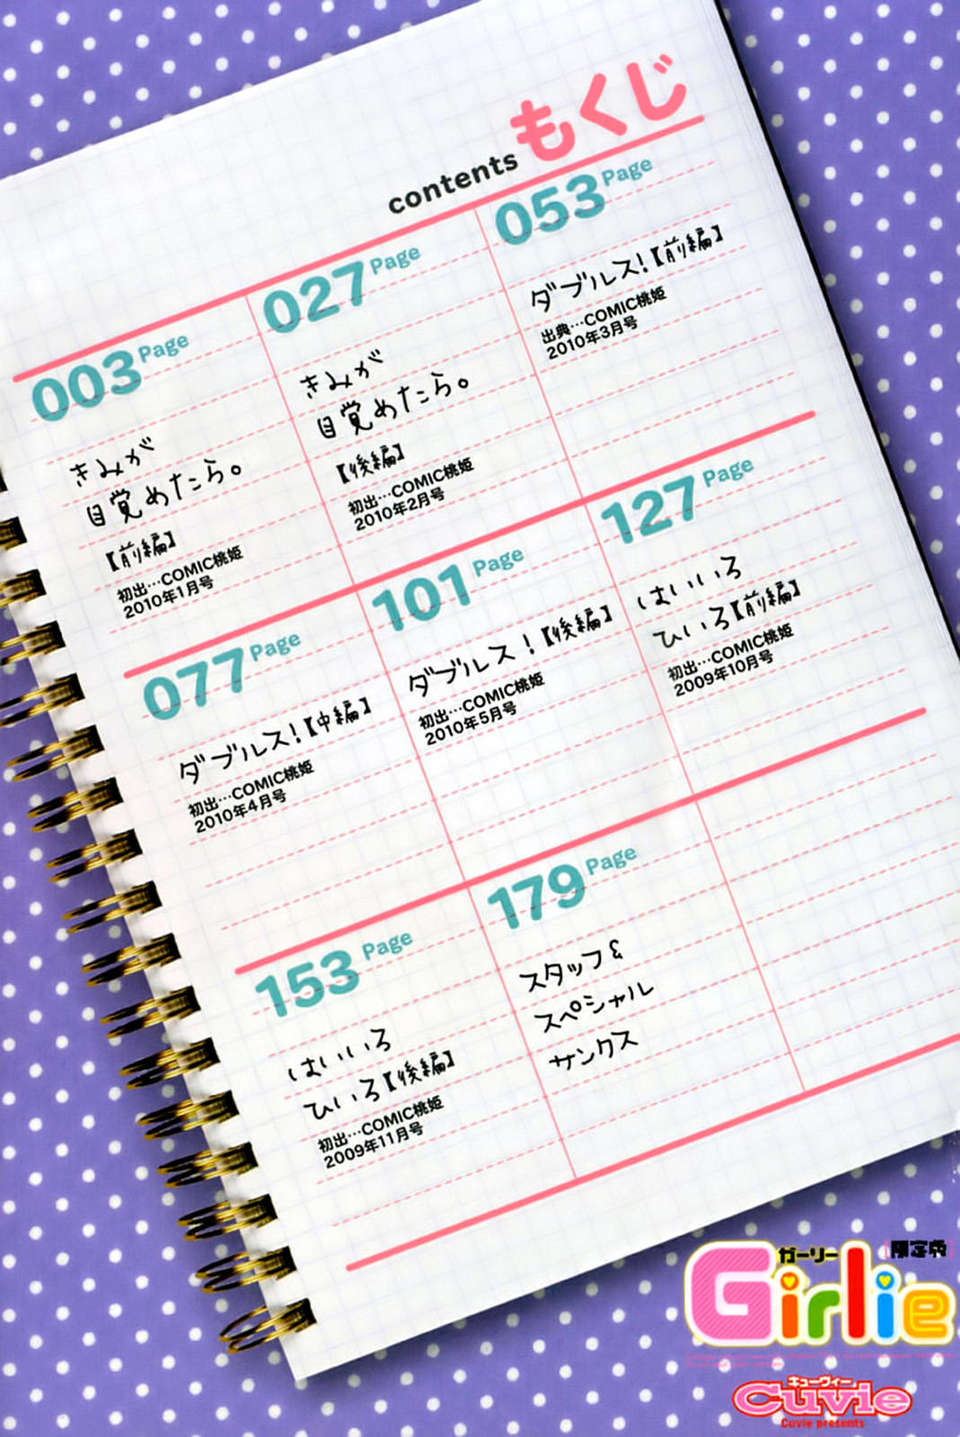 contents もくじ
003 Page
きみが
目覚めたら。
【前編】
初出…COMIC桃姫
2010年1月号
027 Page
きみが
目覚めたら。
【後編】
初出…COMIC桃姫
2010年2月号
053 Page
ダブルス!【前編】
出典…COMIC桃姫
2010年3月号
077 Page
ダブルス!【中編】
初出…COMIC桃姫
2010年4月号
101 Page
ダブルス!【後編】
初出…COMIC桃姫
2010年5月号
127 Page
はいいろ
ひいろ【前編】
初出…COMIC桃姫
2009年10月号
153 Page
はいいろ
ひいろ【後編】
初出…COMIC桃姫
2009年11月号
179 Page
スタッフ&
スペシャル
サンクス
ガーリー 限定版
Girlie
キューヴィー
Cuvie
Cuvie presents